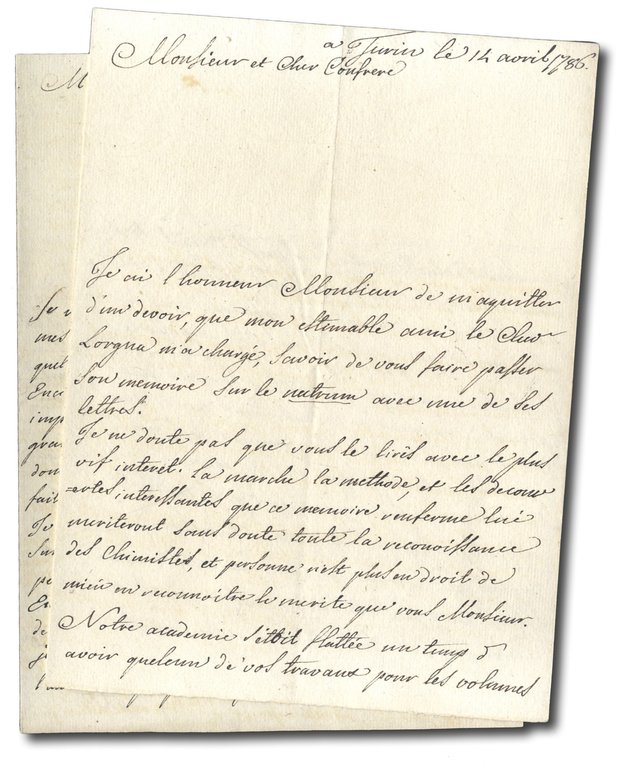 a Turin le 14 avril 1786.
Monsieur et Cher Confrere
Je ai l honneur Monsieur de m'aquitter
d'un devoir, que mon estimable ami le Chevr
Lorgna m'a chargé, savoir de vous faire passer
son memoire sur le natrum avec une de ses
lettres.
Je ne doute pas que vous le lirés avec le plus
vif interet. la marche la methode, et les decouv
=ertes interessantes que ce memoire renferme lui
meriteront sans doute toute la reconoissance
des Chimistes, et personne n'est plus en droit de
mieu en reconnoitre le merite que vous Monsieur.
Notre academie s'étoit flattée un temps d
avoir quelcun de vos travaux pour les volumes
M
Je
mes
quel
Enc
imp
gra
don
fait
Je
Sur
pe
En
de
j